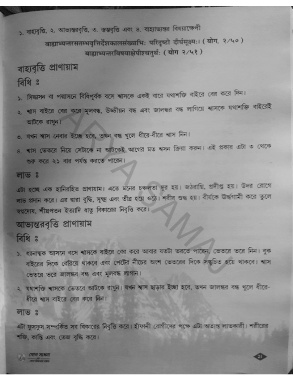 ১. বাহ্যবৃত্তি, ২. আভ্যন্তরবৃত্তি, ৩. স্তম্ভবৃত্তি এবং ৪. বাহ্যাভ্যন্তর বিষয়াক্ষেপী
বাহ্যাভ্যন্তরস্তম্ভবৃত্তির্দেশকালসংখ্যাভিঃ পরিদৃষ্টো দীর্ঘসূক্ষ্মঃ। (যোগ. ২/৫০)
বাহ্যাভ্যন্তরবিষয়াক্ষেপী চতুর্থঃ। (যোগ ২/৫১)
বাহ্যবৃত্তি প্রাণায়াম
বিধি ঃ
১. সিদ্ধাসন বা পদ্মাসনে বিধিপূর্বক বসে শ্বাসকে একই বারে যথাশক্তি বাইরে বের করে নিন।
২. শ্বাস বাইরে বের করে মূলবন্ধ, উড্ডীয়ন বন্ধ এবং জালন্ধর বন্ধ লাগিয়ে শ্বাসকে যথাশক্তি বাইরেই
আটকে রাখুন।
৩. যখন শ্বাস নেবার ইচ্ছে হবে, তখন বন্ধ খুলে ধীরে-ধীরে শ্বাস নিন।
৪. শ্বাস ভেতরে নিয়ে সেটাকে না আটকেই আগের মত শ্বসন ক্রিয়া করুন। এই প্রকার এটা ৩ থেকে
শুরু করে ২১ বার পর্যন্ত করতে পারেন।
লাভ ঃ
এটা হচ্ছে এক হানিরহিত প্রাণায়াম। এতে মনের চঞ্চলতা দূর হয়। জঠরাগ্নি, প্রদীপ্ত হয়। উদর রোগে
লাভ প্রদান করে। এর দ্বারা বুদ্ধি, সূক্ষ্ম এবং তীব্র হয়ে ওঠে। শরীর শুদ্ধ হয়। বীর্যকে ঊর্ধ্বগামী করে তুলে
স্বপ্নদোষ, শীঘ্রপতন ইত্যাদি ধাতু বিকারের নিবৃত্তি করে।
আভ্যন্তরবৃত্তি প্রাণায়াম
বিধি ঃ
১. ধ্যানাত্মক আসনে বসে শ্বাসকে বাইরে বের করে আবার যতটা ভরতে পারেন, ভেতরে ভরে নিন। বুক
বাইরের দিকে বেরিয়ে থাকবে এবং পেটের নীচের অংশ ভেতরের দিকে সঙ্কুচিত হয়ে থাকবে। শ্বাস
ভেতরে ভরে জালন্ধর বন্ধ এবং মূলবন্ধ লাগান।
২. যথাশক্তি শ্বাসকে ভেতরে আটকে রাখুন। যখন শ্বাস ছাড়ার ইচ্ছা হবে, তখন জালন্ধর বন্ধ খুলে ধীরে-
ধীরে শ্বাস বাইরে বের করে নিন
লাভ ঃ
এটা ফুসফুস সম্পর্কিত সব বিকারের নিবৃত্তি করে। হাঁপানী রোগীদের পক্ষে এটা অত্যন্ত লাভকারী। শরীরের
শক্তি, কান্তি এবং তেজ বৃদ্ধি করে।
21